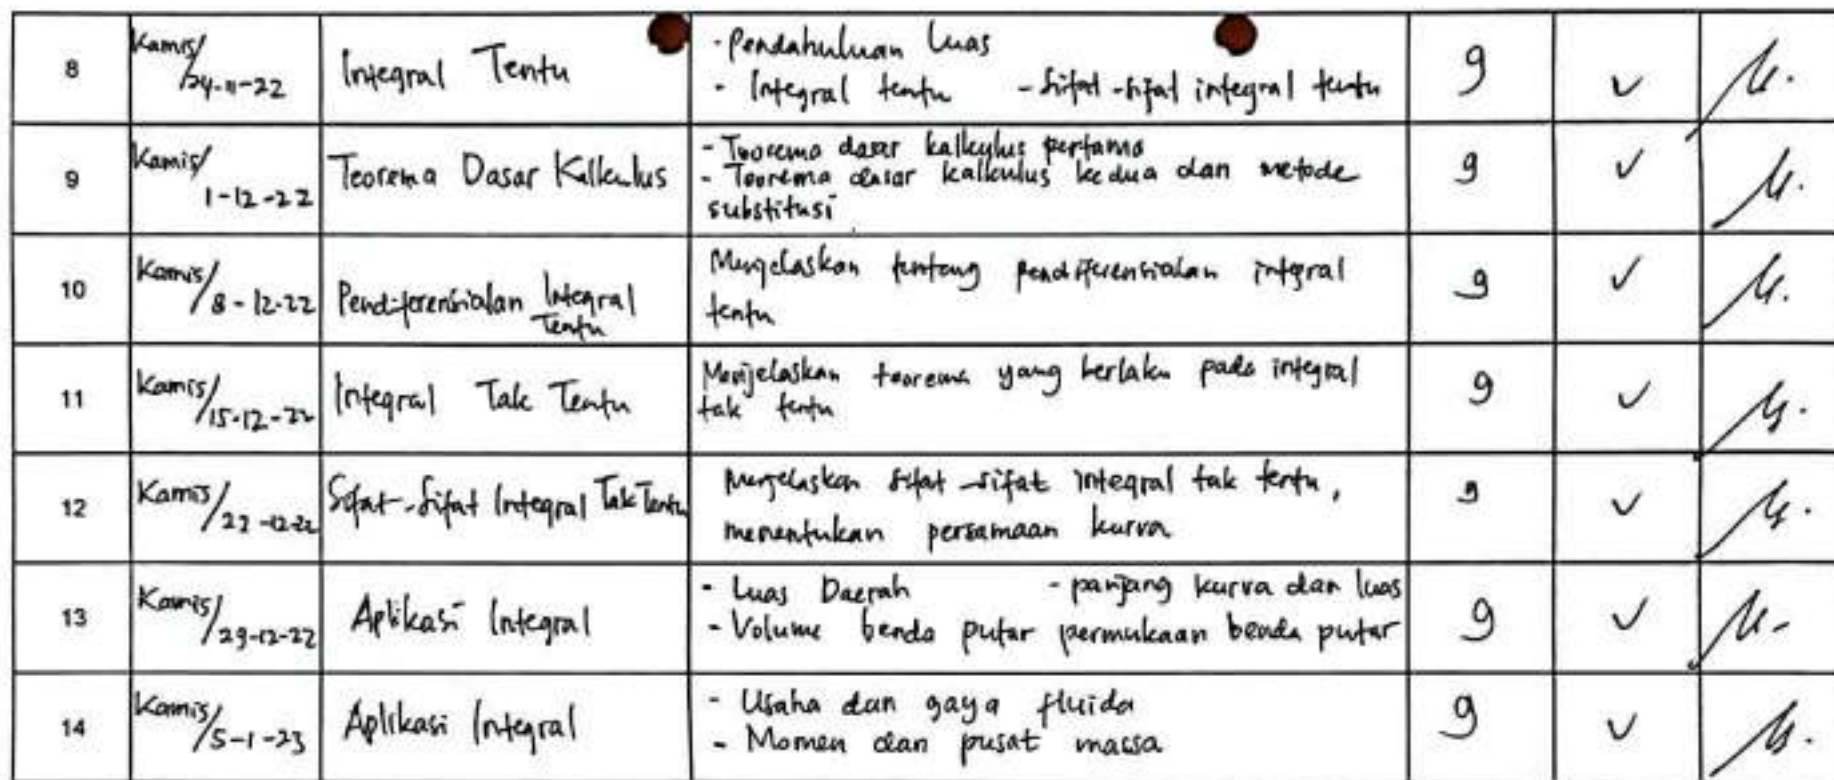 8 Kamis/ 24-11-22 Integral Tentu - Pendahuluan Luas
- Integral tentu - Sifat-sifat integral tentu 9 ✓
9 Kamis/ 1-12-22 Teorema Dasar Kalkulus - Teorema dasar kalkulus pertama
- Teorema dasar kalkulus kedua dan metode
substitusi 9 ✓
10 Kamis/ 8-12-22 Pendiferensialan Integral
Tentu Menjelaskan tentang pendiferensialan integral
tentu 9 ✓
11 Kamis/ 15-12-22 Integral Tak Tentu Menjelaskan teorema yang berlaku pada integral
tak tentu 9 ✓
12 Kamis/ 22-12-22 Sifat-Sifat Integral Tak Tentu Menjelaskan sifat-sifat integral tak tentu,
menentukan persamaan kurva 9 ✓
13 Kamis/ 29-12-22 Aplikasi Integral - Luas Daerah - panjang kurva dan luas
- Volume benda putar permukaan benda putar 9 ✓
14 Kamis/ 5-1-23 Aplikasi Integral - Usaha dan gaya fluida
- Momen dan pusat massa 9 ✓